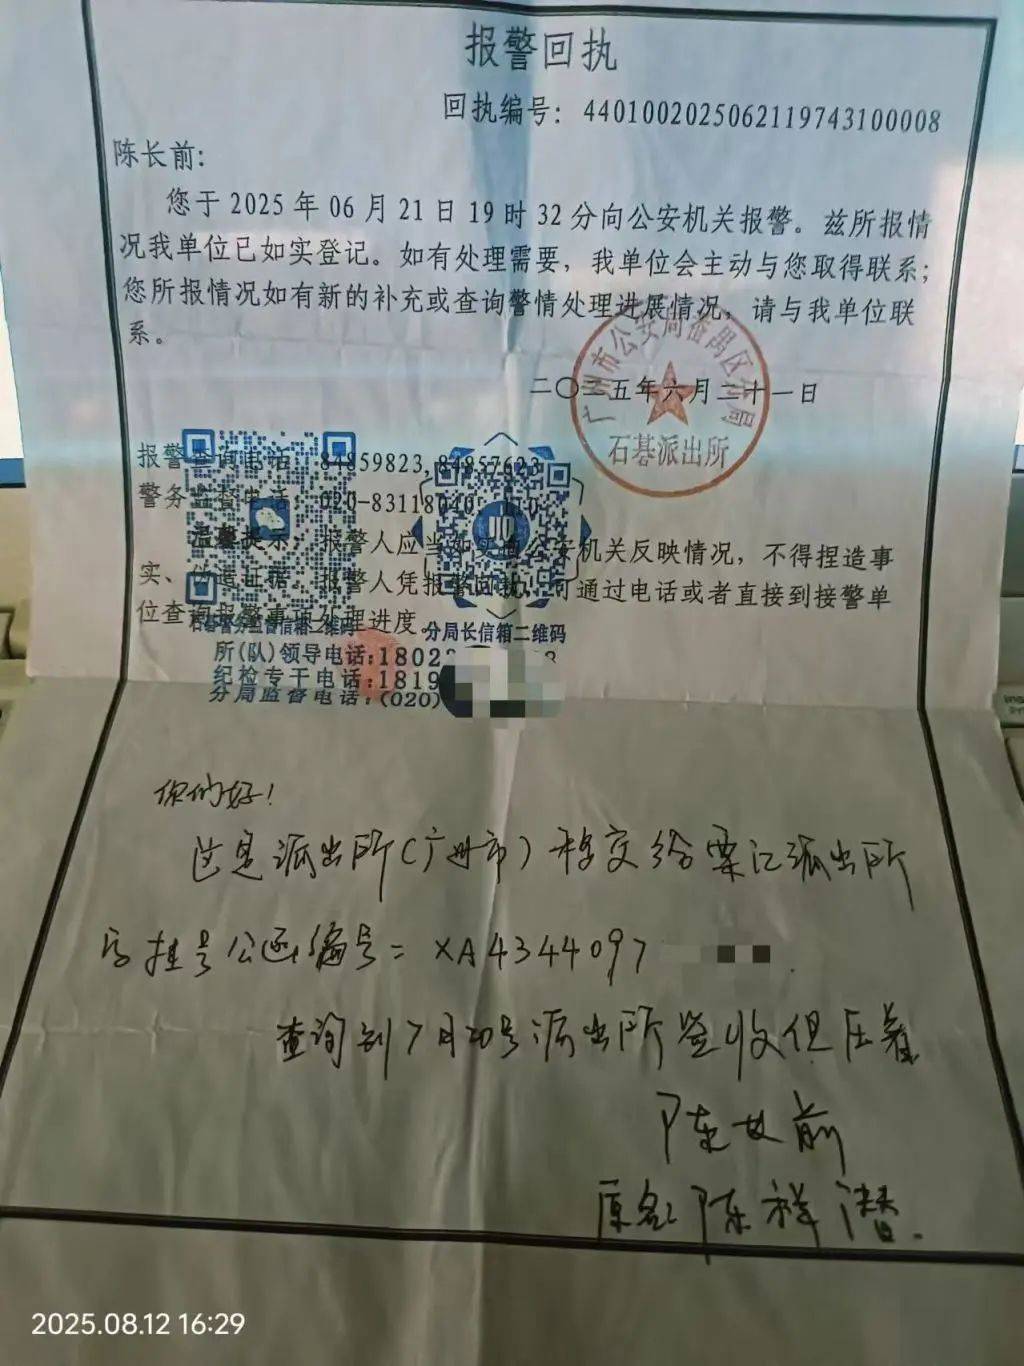 报警回执
回执编号：4401002025062119743100008
陈长前：
您于2025年06月21日19时32分向公安机关报警。兹所报情
况我单位已如实登记。如有处理需要，我单位会主动与您取得联系；
您所报情况如有新的补充或查询警情处理进展情况，请与我单位联
系。
广州市公安局番禺区分局
二〇二五年六月二十一日
石碁派出所
报警查询电话：84859823,84857623
警务监督电话：020-83118040、110
温馨提示：报警人应当如实向公安机关反映情况，不得捏造事
实、伪造证据。报警人凭报警回执，可通过电话或者直接到接警单
位查询报警事项处理进度。
石碁警务监督信箱二维码
分局长信箱二维码
所(队)领导电话:1802
纪检专干电话:1819
分局监督电话:(020)
你们好！
这是派出所(广州市)移交给栗江派出所
挂号公函编号=XA4344097
查询到7月20号派出所签收但压着
陈长前
原名陈祥潜.
2025.08.12 16:29